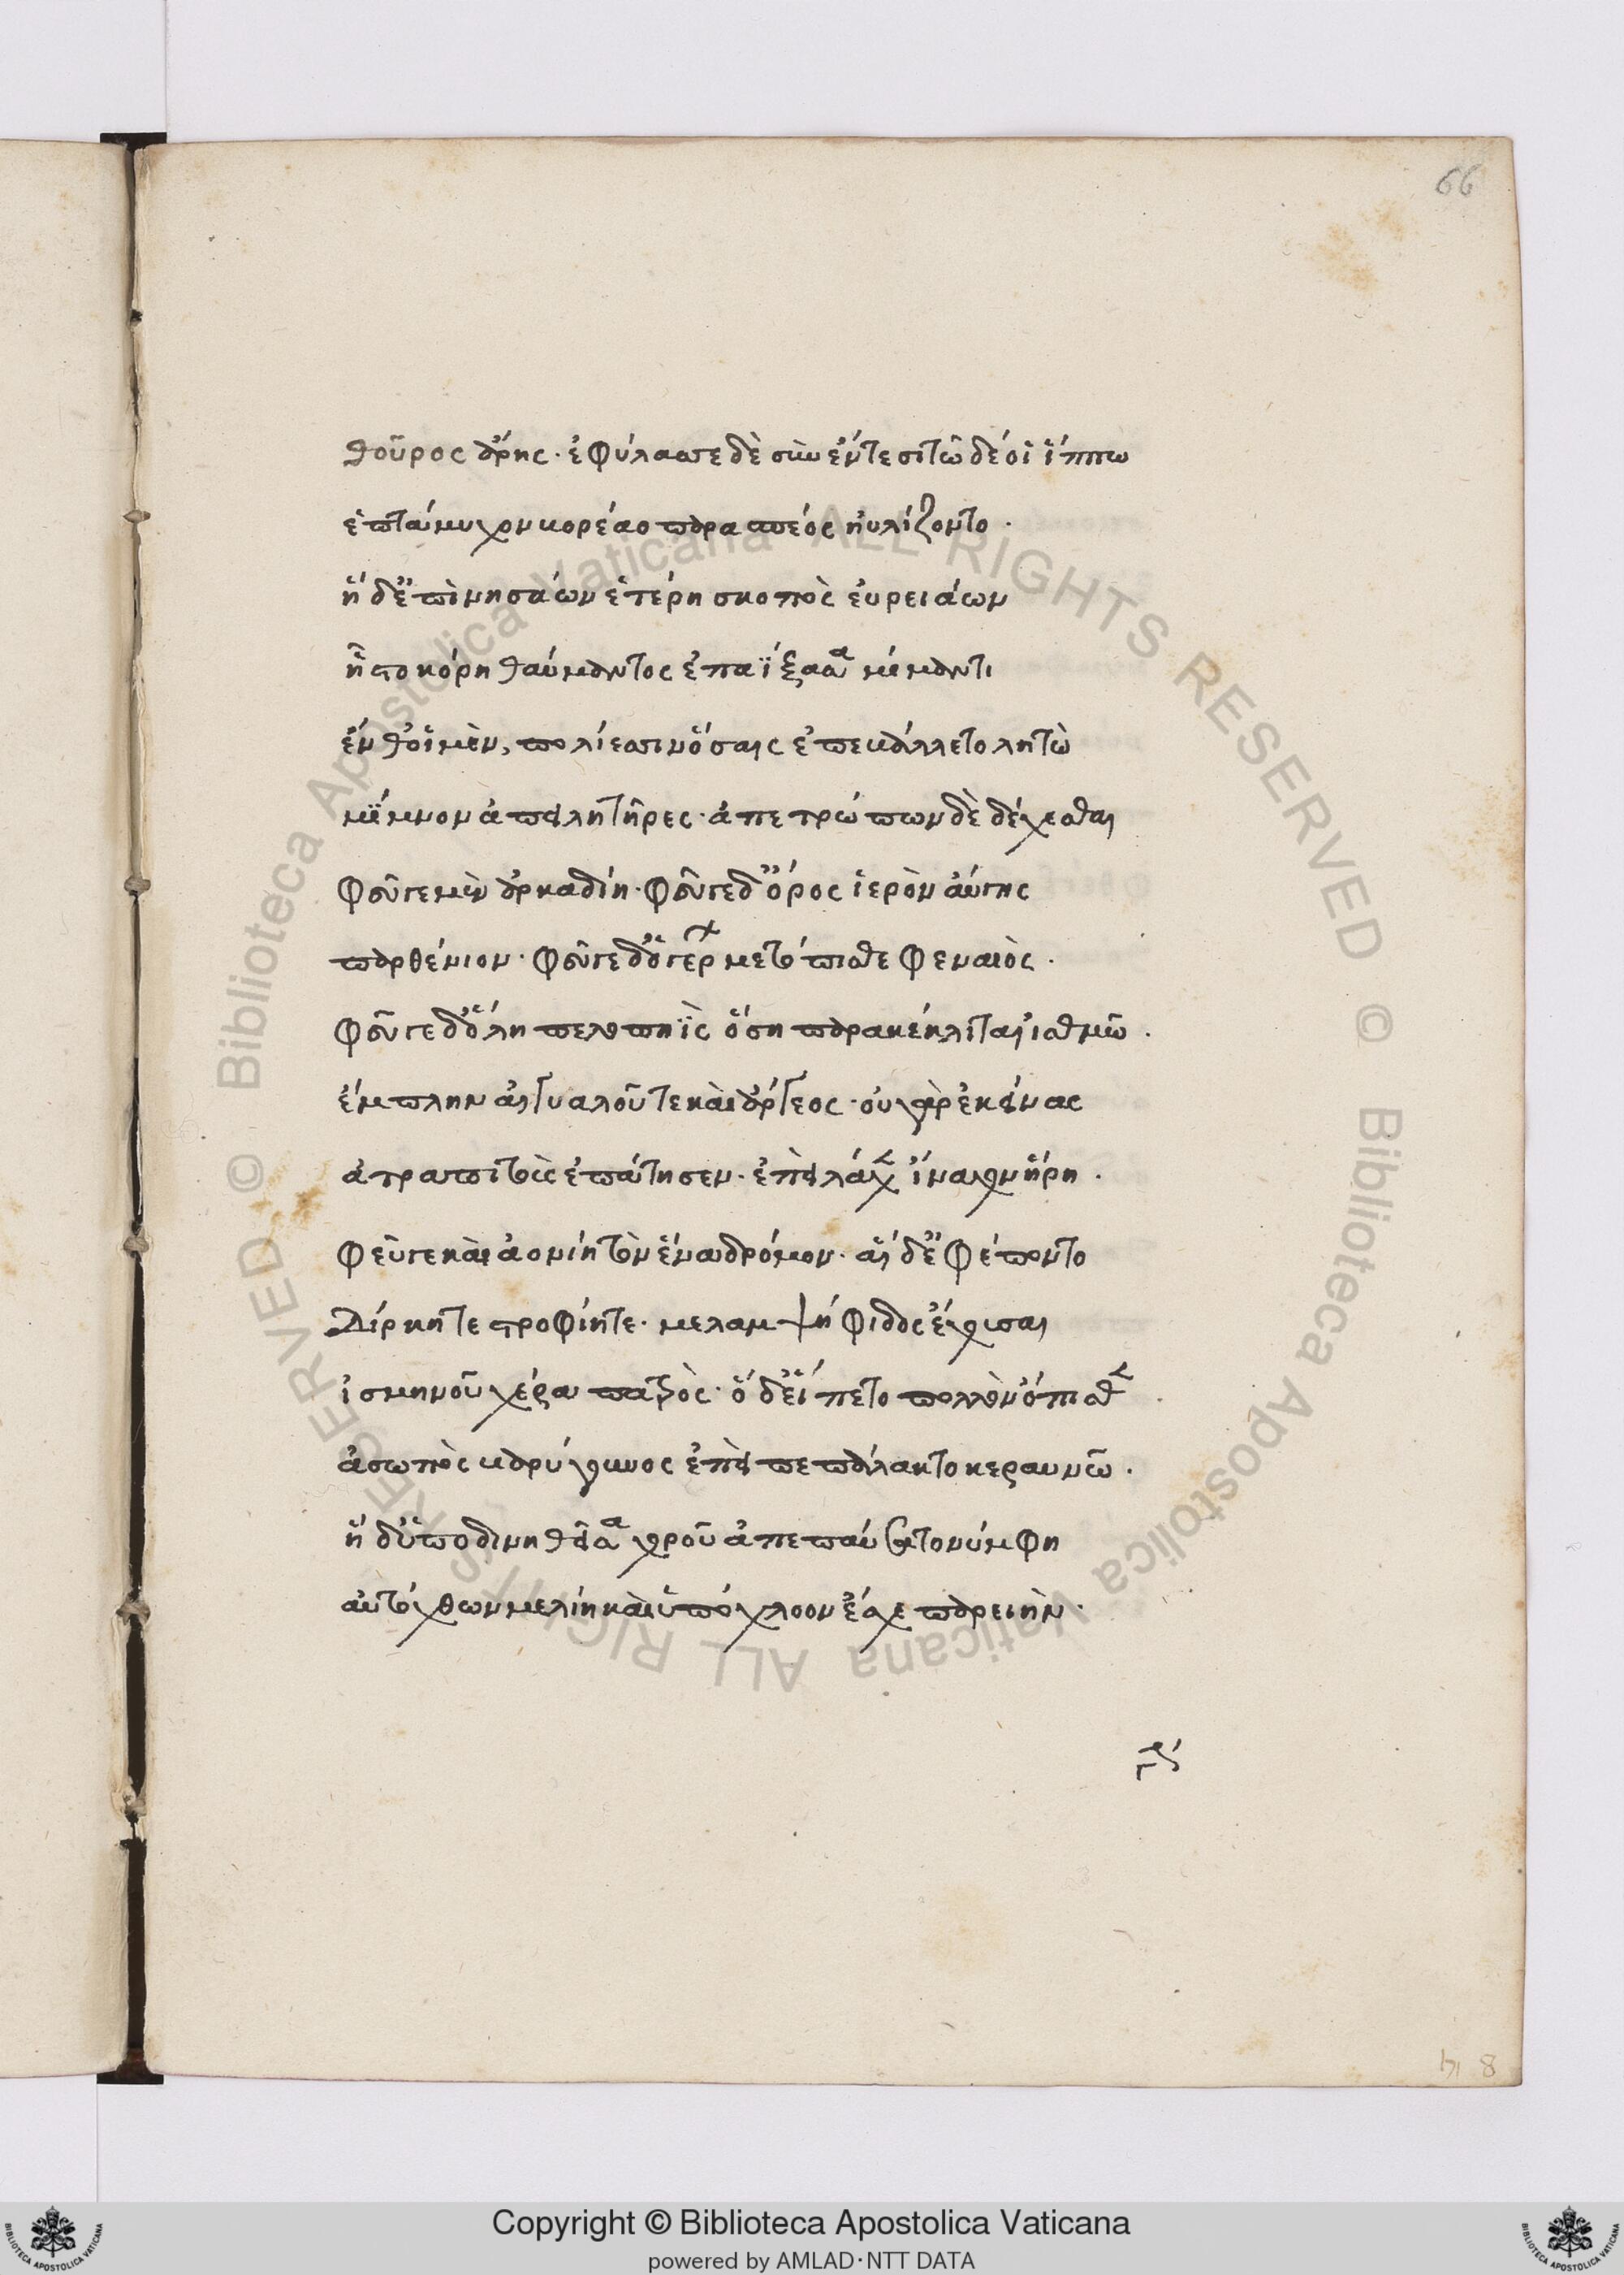 66
θοῦρος ἄρης· ἐφύλασσε δὲ σὺν ἔντεσι τῷ δέ οἱ ἵππω
ἑπτάμυχον κορέαο παρὰ σπέος ηὐλίζοντο·
ἡ δ' ἔπι νησάων ἑτέρη σκοπὸς εὐρειάων
ἧστο κόρη θαύμαντος ἐπαΐξασα μίμαντι
ἔνθ' οἱ μὲν, πολίεσσιν ὅσαις ἐπεβάλλετο λητὼ
μίμνον ἀπειλητῆρες· ἀπετρώπων δὲ δέχεσθαι
φεῦγε μὲν ἀρκαδίη· φεῦγε δ' ὄρος ἱερὸν αὔγης
παρθένιον· φεῦγε δ' ὁ γέρων μετόπισθε φεναιός·
φεῦγε δ' ὅλη πελοπηῒς ὅση παρακέκλιται ἰσθμῶ·
ἔμπλην αἰγιαλοῦ τε καὶ ἄργεος· οὐ γὰρ ἐκείνας
ἀτραπιτοὺς ἐπάτησεν· ἐπεὶ λάχεν ἴναχον ἥρη·
φεῦγε καὶ ἀονίη τὸν ἕνα δρόμον· αἱ δ' ἐφέποντο
Δίρκη τε στροφίη τε· μελαμψήφιδος ἔχουσαι
ἰσμηνοῦ χέρα πατρὸς· ὁ δ' εἵπετο πολλὸν ὄπισθεν
ἀσωπὸς βαρύγουνος ἐπεὶ πεπάλακτο κεραυνῶ·
ἡ δ' ὑποδινηθεῖσα χοροῦ ἀπεπαύσατο νύμφη
αὐτόχθων μελίη καὶ ὑπόχλοον ἔσχε παρειὴν·
Copyright © Biblioteca Apostolica Vaticana
powered by AMLAD·NTT DATA